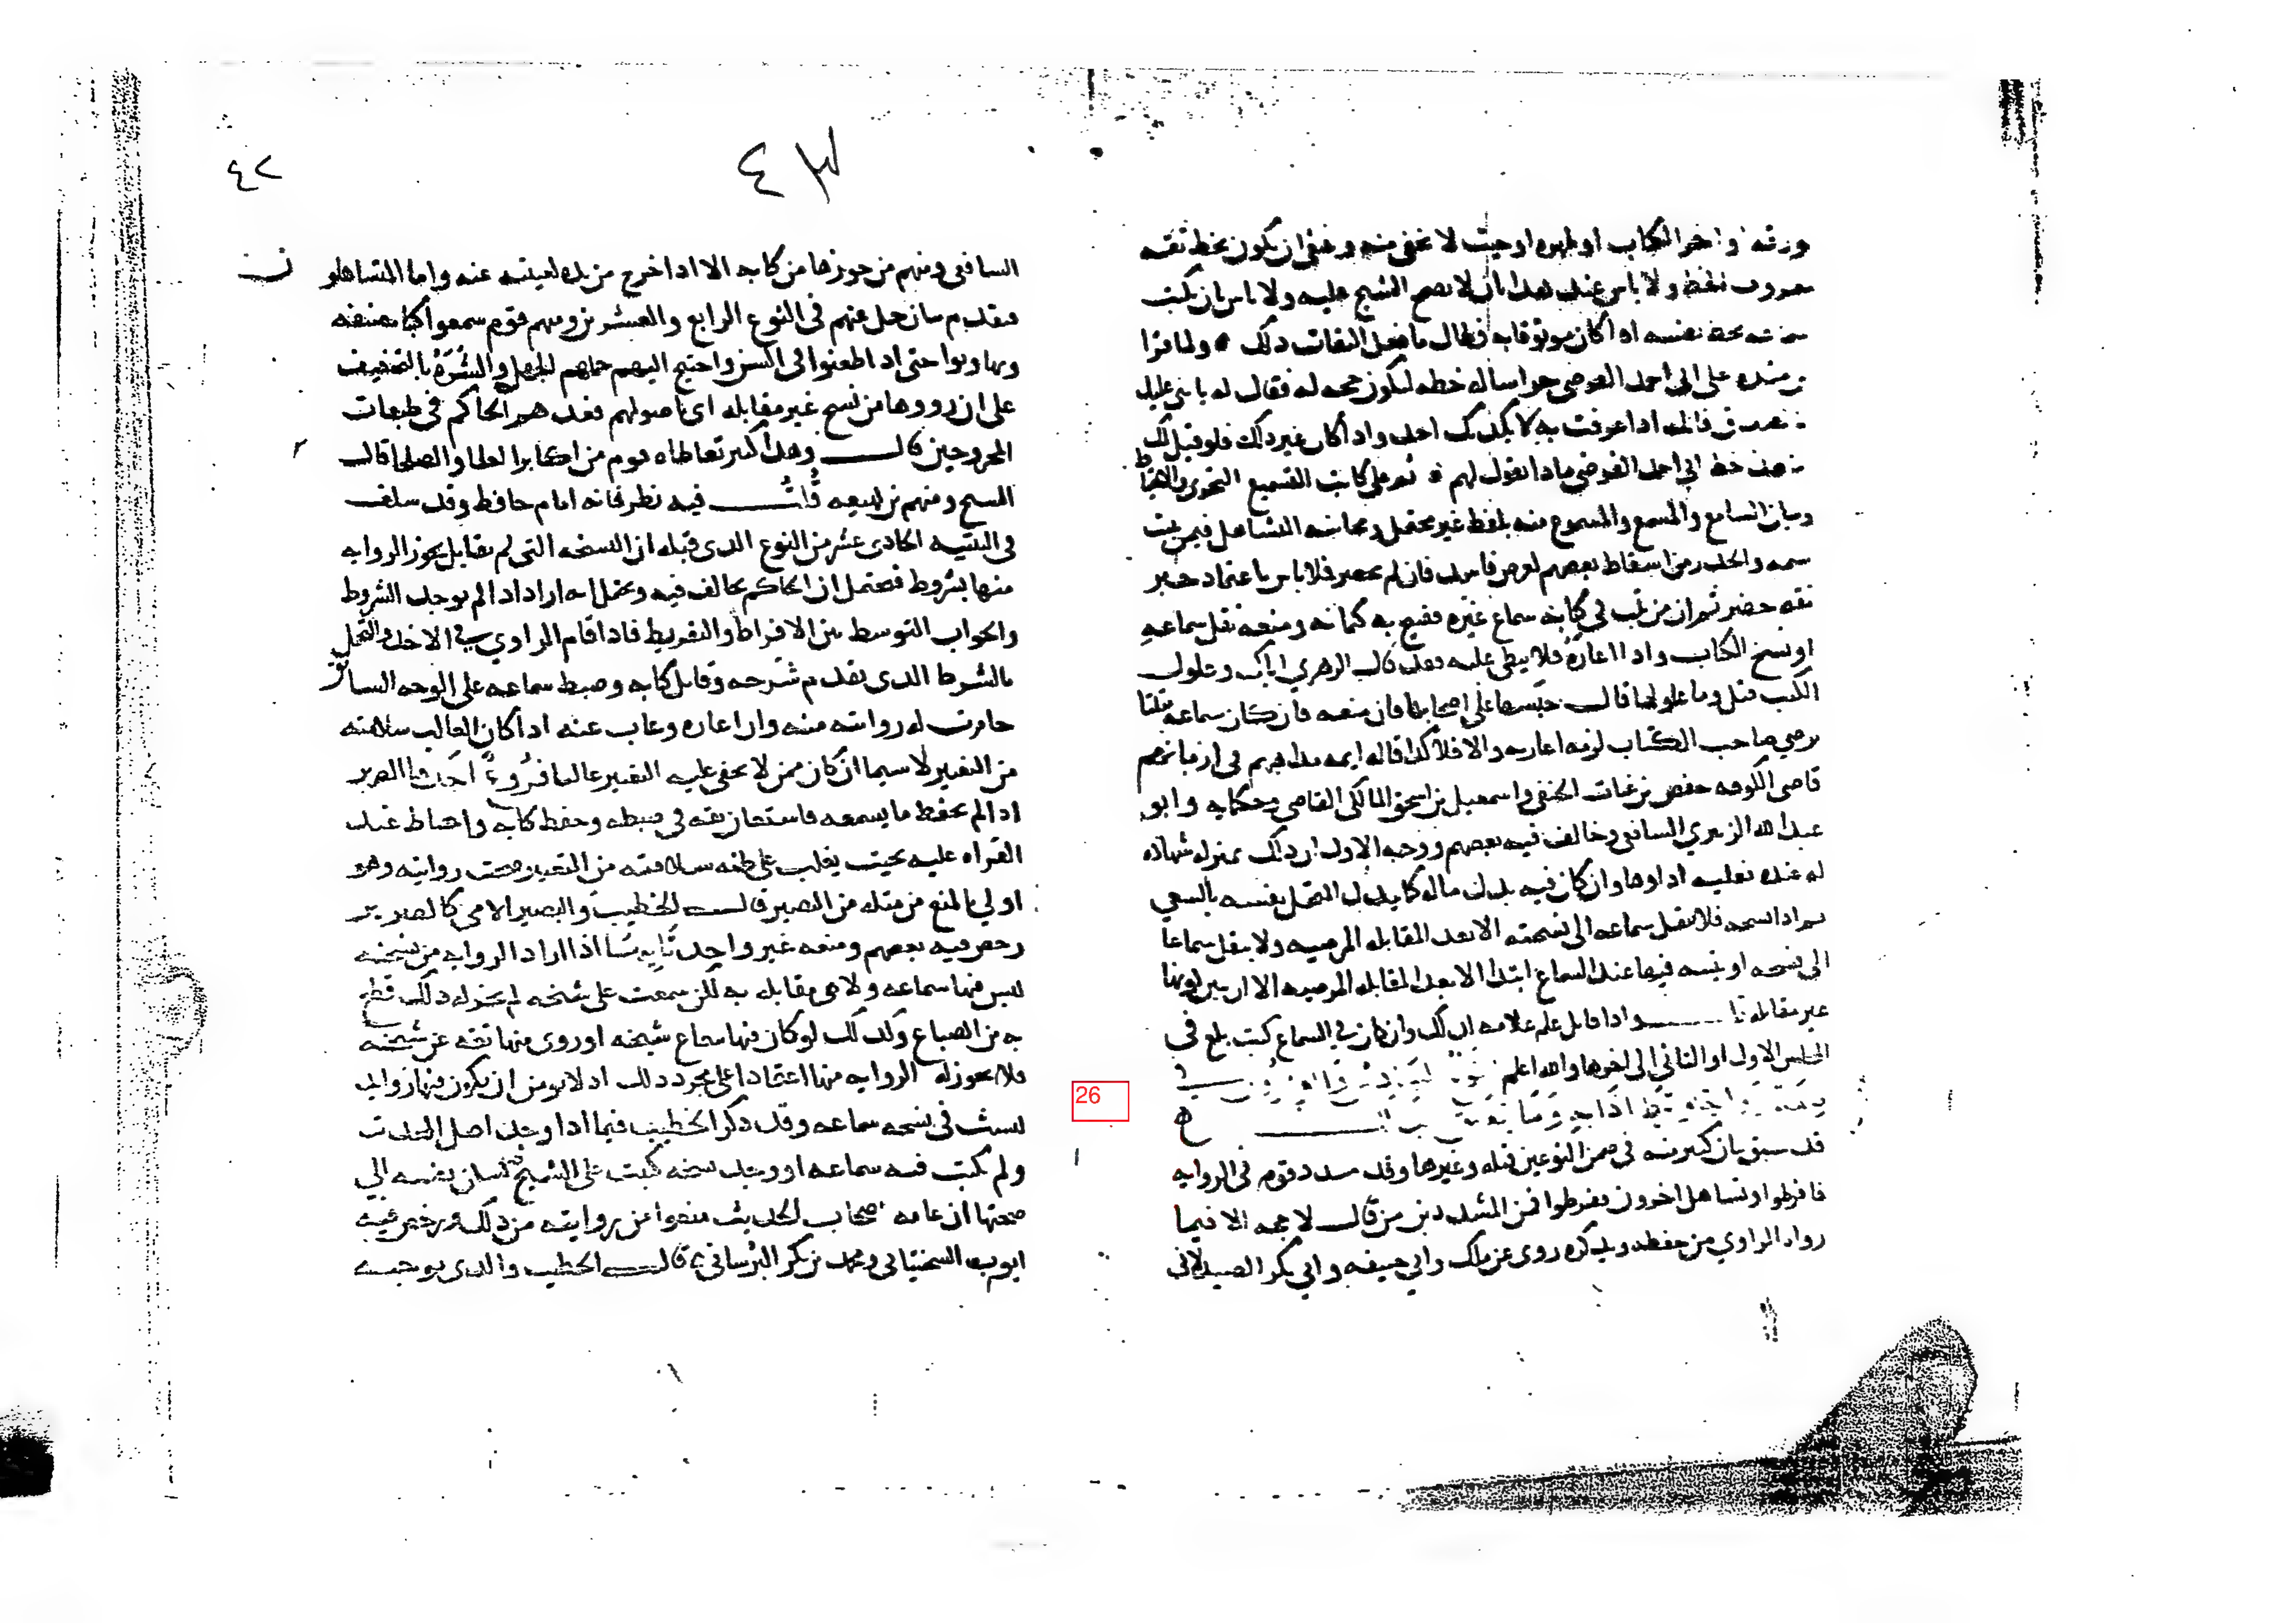 ورقة واخر الكتاب او ظهره او حيث لا يخفى منه وينبغي ان يكون بخط ثقة
معروف الخط ولا باس عند هذا بان لا يصح الشيخ عليه ولا باس ان يكتب
سماعه بخط نفسه اذا كان موثوقا به فطال ما فعل الثقات ذلك ولما قرا
بن منده على ابي احمد الفرضي جزا ساله خطه ليكون حجة له فقال له يا بني عليك
بالصدق فانك اذا عرفت به لا يكذبك احد واذا كان غير ذلك فلو قيل لك
ما هذا خط ابي احمد الفرضي ماذا تقول لهم ثم على كاتب التسميع التحري والاحتياط
وبيان السامع والمسمع والمسموع منه بلفظ غير محتمل ومجانبة التساهل فيمن يثبت
اسمه والحذر من اسقاط بعضهم لغرض فاسد فان لم يحضر فلا باس باعتماد خبر
ثقة حضر ثم ان من ثبت في كتابه سماع غيره فقبيح به كتمانه ومنعه نقل سماعه
او نسخ الكتاب واذا اعاره فلا يبطي عليه فقد قال الزهري اياك وغلول
الكتب قيل وما غلولها قال حبسها على اصحابها فان منعه فان كان سماعه مثبتا
برضى صاحب الكتاب لزمه اعارته والا فلا كذا قاله ايمة مذاهبهم في ازمانهم
قاضي الكوفة حفص بن غياث الحنفي واسمعيل بن اسحق المالكي القاضي وحكاه وابو
عبد الله الزبيري الشافعي وخالف فيه بعضهم ووجه الاول ان ذلك بمنزلة شهادة
له عنده فعليه اداوها وان كان فيه بذل ماله كما يبذل المتحمل نفسه بالسعي
ثم اذا نسخه فلا ينقل سماعه الى نسخته الا بعد المقابلة المرضية ولا ينقل سماعا
الى نسخه او يثبته فيها عند السماع ابتدا الا بعد المقابلة المرضية الا ان يبين كونها
غير مقابلة واذا قابل علم علامة لذلك وان كان في السماع كتب بلغ في
المجلس الاول او الثاني الى اخرها والله اعلم
قد سبق بيان كثير منه في ضمن النوعين قبله وغيرها وقد شدد قوم في الرواية
فافرطوا وتساهل اخرون ففرطوا فمن المشددين من قال لا حجة الا فيما
رواه الراوي من حفظه وبذكره روى عن ملك وابي حنيفة وابي بكر الصيدلاني
٤٣
٤٢
الشافعي ومنهم من جوزها من كتابه الا اذا اخرج من يده لغيبته عنه واما المتساهلون
فتقدم بيان جمل عنهم في النوع الرابع والعشرين ومنهم قوم سمعوا كتبا مصنفة
وتهاونوا حتى اذا طعنوا في السن واحتيج اليهم حملهم الجهل والشره بالتخفيف
على ان رووها من نسخ غير مقابلة اي باصولهم فعدهم الحاكم في طبقات
المجروحين قال وهذا كثير تعاطاه قوم من اكابر العلما والصلحا قال
الشيخ ومنهم بن لهيعة قلت فيه نظر فانه امام حافظ وقد سلف
في التنبيه الحادي عشر من النوع الذي قبله ان النسخة التي لم تقابل يجوز الرواية
منها بشروط فيحتمل ان الحاكم يخالف فيه ويحتمل انه اراد اذا لم يوجد الشروط
والجواب التوسط بين الافراط والتفريط فاذا قام الراوي في الاخذ والتحمل
بالشرط الذي تقدم شرحه وقابل كتابه وضبط سماعه على الوجه السابق
جازت له روايته منه وان اعاره وغاب عنه اذا كان الغالب سلامته
من التغيير لا سيما ان كان ممن لا يخفى عليه التغيير غالبا فروع احدها الضرير
اذا لم يحفظ ما يسمعه فاستعان بثقة في ضبطه وحفظ كتابه واحتاط عند
القراة عليه بحيث يغلب على ظنه سلامته من التغيير صحت روايته وهو
اولى بالمنع من مثله من البصير قال الخطيب والبصير الامي كالضرير
رخص فيه بعضهم ومنعه غير واحد ثانيها اذا اراد الرواية من نسخة
ليس فيها سماعه ولا هي مقابلة به لكن سمعت على شيخه لم يجز له ذلك قطع
به بن الصباغ وكذلك لو كان فيها سماع شيخه او روى منها ثقة عن شيخه
فلا يجوز له الرواية منها اعتمادا على مجرد ذلك اذ لا يومن ان يكون فيها زوايد
ليست في نسخة سماعه وقد ذكر الخطيب فيما اذا وجد اصل المحدث
ولم يكتب فيه سماعه او وجد نسخة كتبت على الشيخ تسكن نفسه الى
صحتها ان عامة اصحاب الحديث منعوا من روايته من ذلك ورخص فيه
ايوب السختياني ومحمد بن بكر البرساني قال الخطيب والذي يوجبه
26